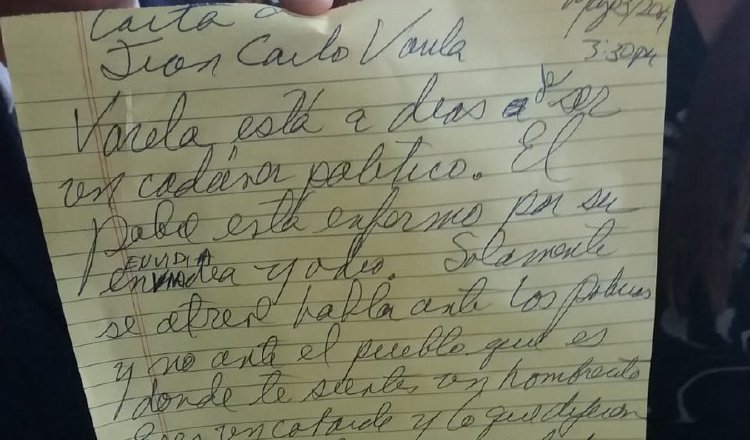 Carta a
Juan Carlo Varela
3:30 pm
Varela está a dias de ser
un cadáver politico. El
pobre está enfermo por su
ENVIDIA
y odio. Solamente
se atreve habla ante los
y no ante el pueblo que es
donde te sientes un hombrecito
Eres un cobarde y lo que dijeron